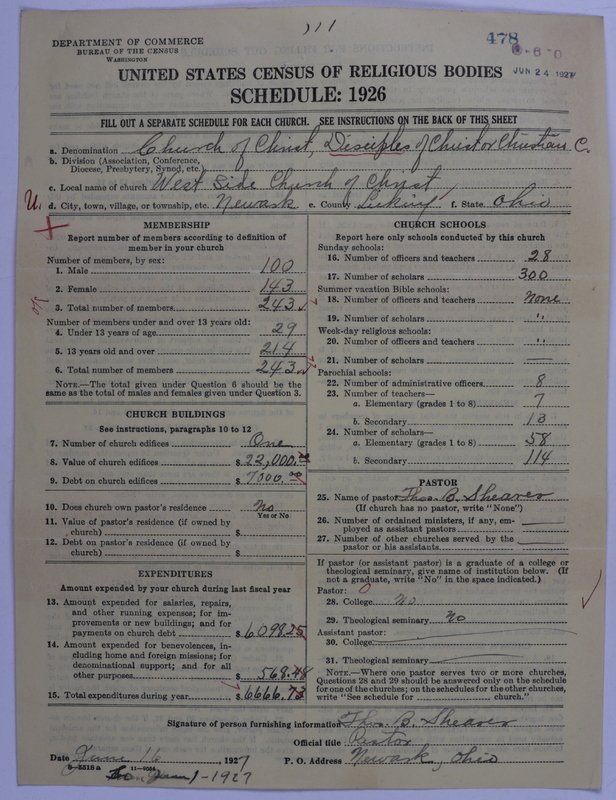 478
DEPARTMENT OF COMMERCE
BUREAU OF THE CENSUS
WASHINGTON
JUN 24 1927
UNITED STATES CENSUS OF RELIGIOUS BODIES
SCHEDULE: 1926
FILL OUT A SEPARATE SCHEDULE FOR EACH CHURCH. SEE INSTRUCTIONS ON THE BACK OF THIS SHEET
a. Denomination Church of Christ, Disciples of Christ or Christian C.
b. Division (Association, Conference,
Diocese, Presbytery, Synod, etc.)
c. Local name of church West Side Church of Christ
U. d. City, town, village, or township, etc. Newark e. County Licking f. State Ohio
MEMBERSHIP
Report number of members according to definition of
member in your church
Number of members, by sex:
1. Male 100
2. Female 143
3. Total number of members 243
Number of members under and over 13 years old:
4. Under 13 years of age 29
5. 13 years old and over 214
6. Total number of members 243
NOTE.—The total given under Question 6 should be the
same as the total of males and females given under Question 3.
CHURCH BUILDINGS
See instructions, paragraphs 10 to 12
7. Number of church edifices One
8. Value of church edifices $ 22,000.00
9. Debt on church edifices $ 7000.00
10. Does church own pastor's residence No
Yes or No
11. Value of pastor's residence (if owned by
church) $
12. Debt on pastor's residence (if owned by
church) $
EXPENDITURES
Amount expended by your church during last fiscal year
13. Amount expended for salaries, repairs,
and other running expenses; for im-
provements or new buildings; and for
payments on church debt $ 6098.25
14. Amount expended for benevolences, in-
cluding home and foreign missions; for
denominational support; and for all
other purposes $ 568.48
15. Total expenditures during year $ 6666.73
CHURCH SCHOOLS
Report here only schools conducted by this church
Sunday schools:
16. Number of officers and teachers 28
17. Number of scholars 300
Summer vacation Bible schools:
18. Number of officers and teachers None
19. Number of scholars "
Week-day religious schools:
20. Number of officers and teachers "
21. Number of scholars —
Parochial schools:
22. Number of administrative officers 8
23. Number of teachers—
a. Elementary (grades 1 to 8) 7
b. Secondary 13
24. Number of scholars—
a. Elementary (grades 1 to 8) 58
b. Secondary 114
PASTOR
25. Name of pastor Thos. B. Shearer
(If church has no pastor, write "None")
26. Number of ordained ministers, if any, em-
ployed as assistant pastors
27. Number of other churches served by the
pastor or his assistants
If pastor (or assistant pastor) is a graduate of a college or
theological seminary, give name of institution below. (If
not a graduate, write "No" in the space indicated.)
Pastor: 0
28. College No
29. Theological seminary No
Assistant pastor:
30. College
31. Theological seminary
NOTE.—Where one pastor serves two or more churches,
Questions 28 and 29 should be answered only on the schedule
for one of the churches; on the schedules for the other churches,
write "See schedule for church."
Signature of person furnishing information Thos. B. Shearer
Official title Pastor
Date June 16, 1927
P. O. Address Newark, Ohio
8—5518a 11—9084
1-1927